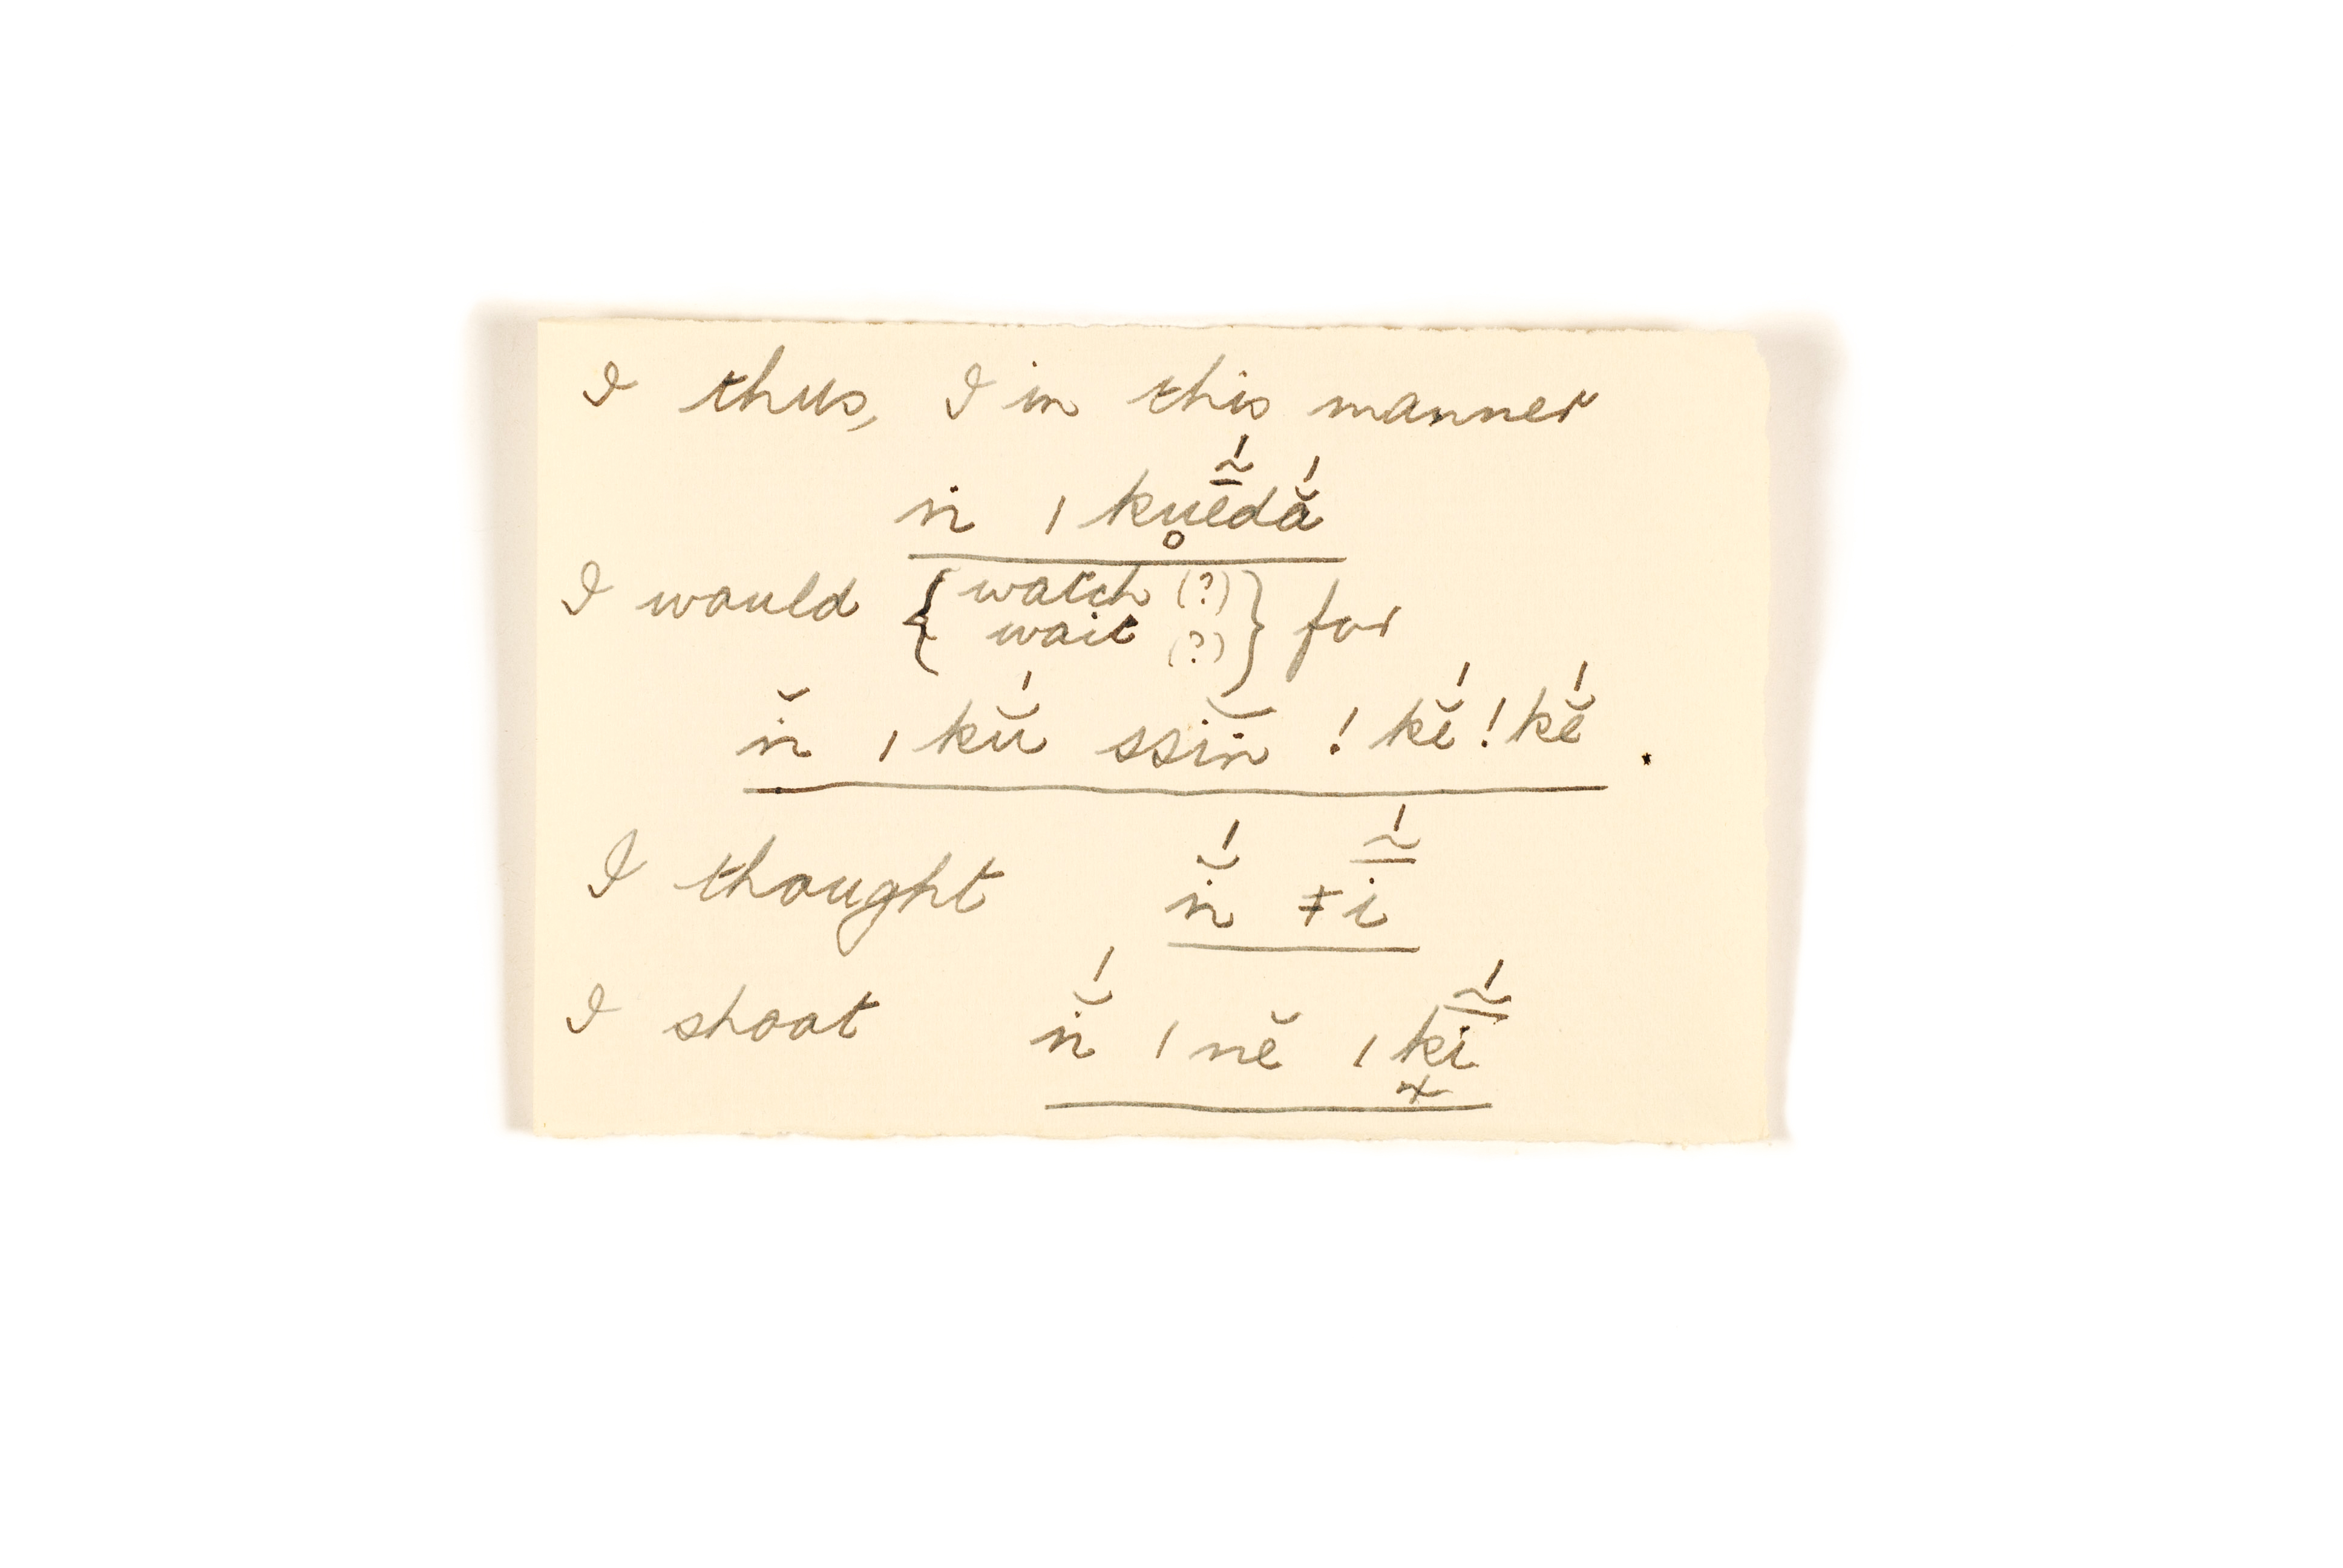 I thus, I in this manner
ṅ ˌkṷḗ̃dắ
I would { watch (?) } for
wait (?)
ṅ̆ ˌkŭ́ ssĭṅ !kĕ́!kĕ́.
I thought ṅ̆́ ǂī̃́
I shoot ṅ̆́ ǀnĕ ǀk͓ī̃́